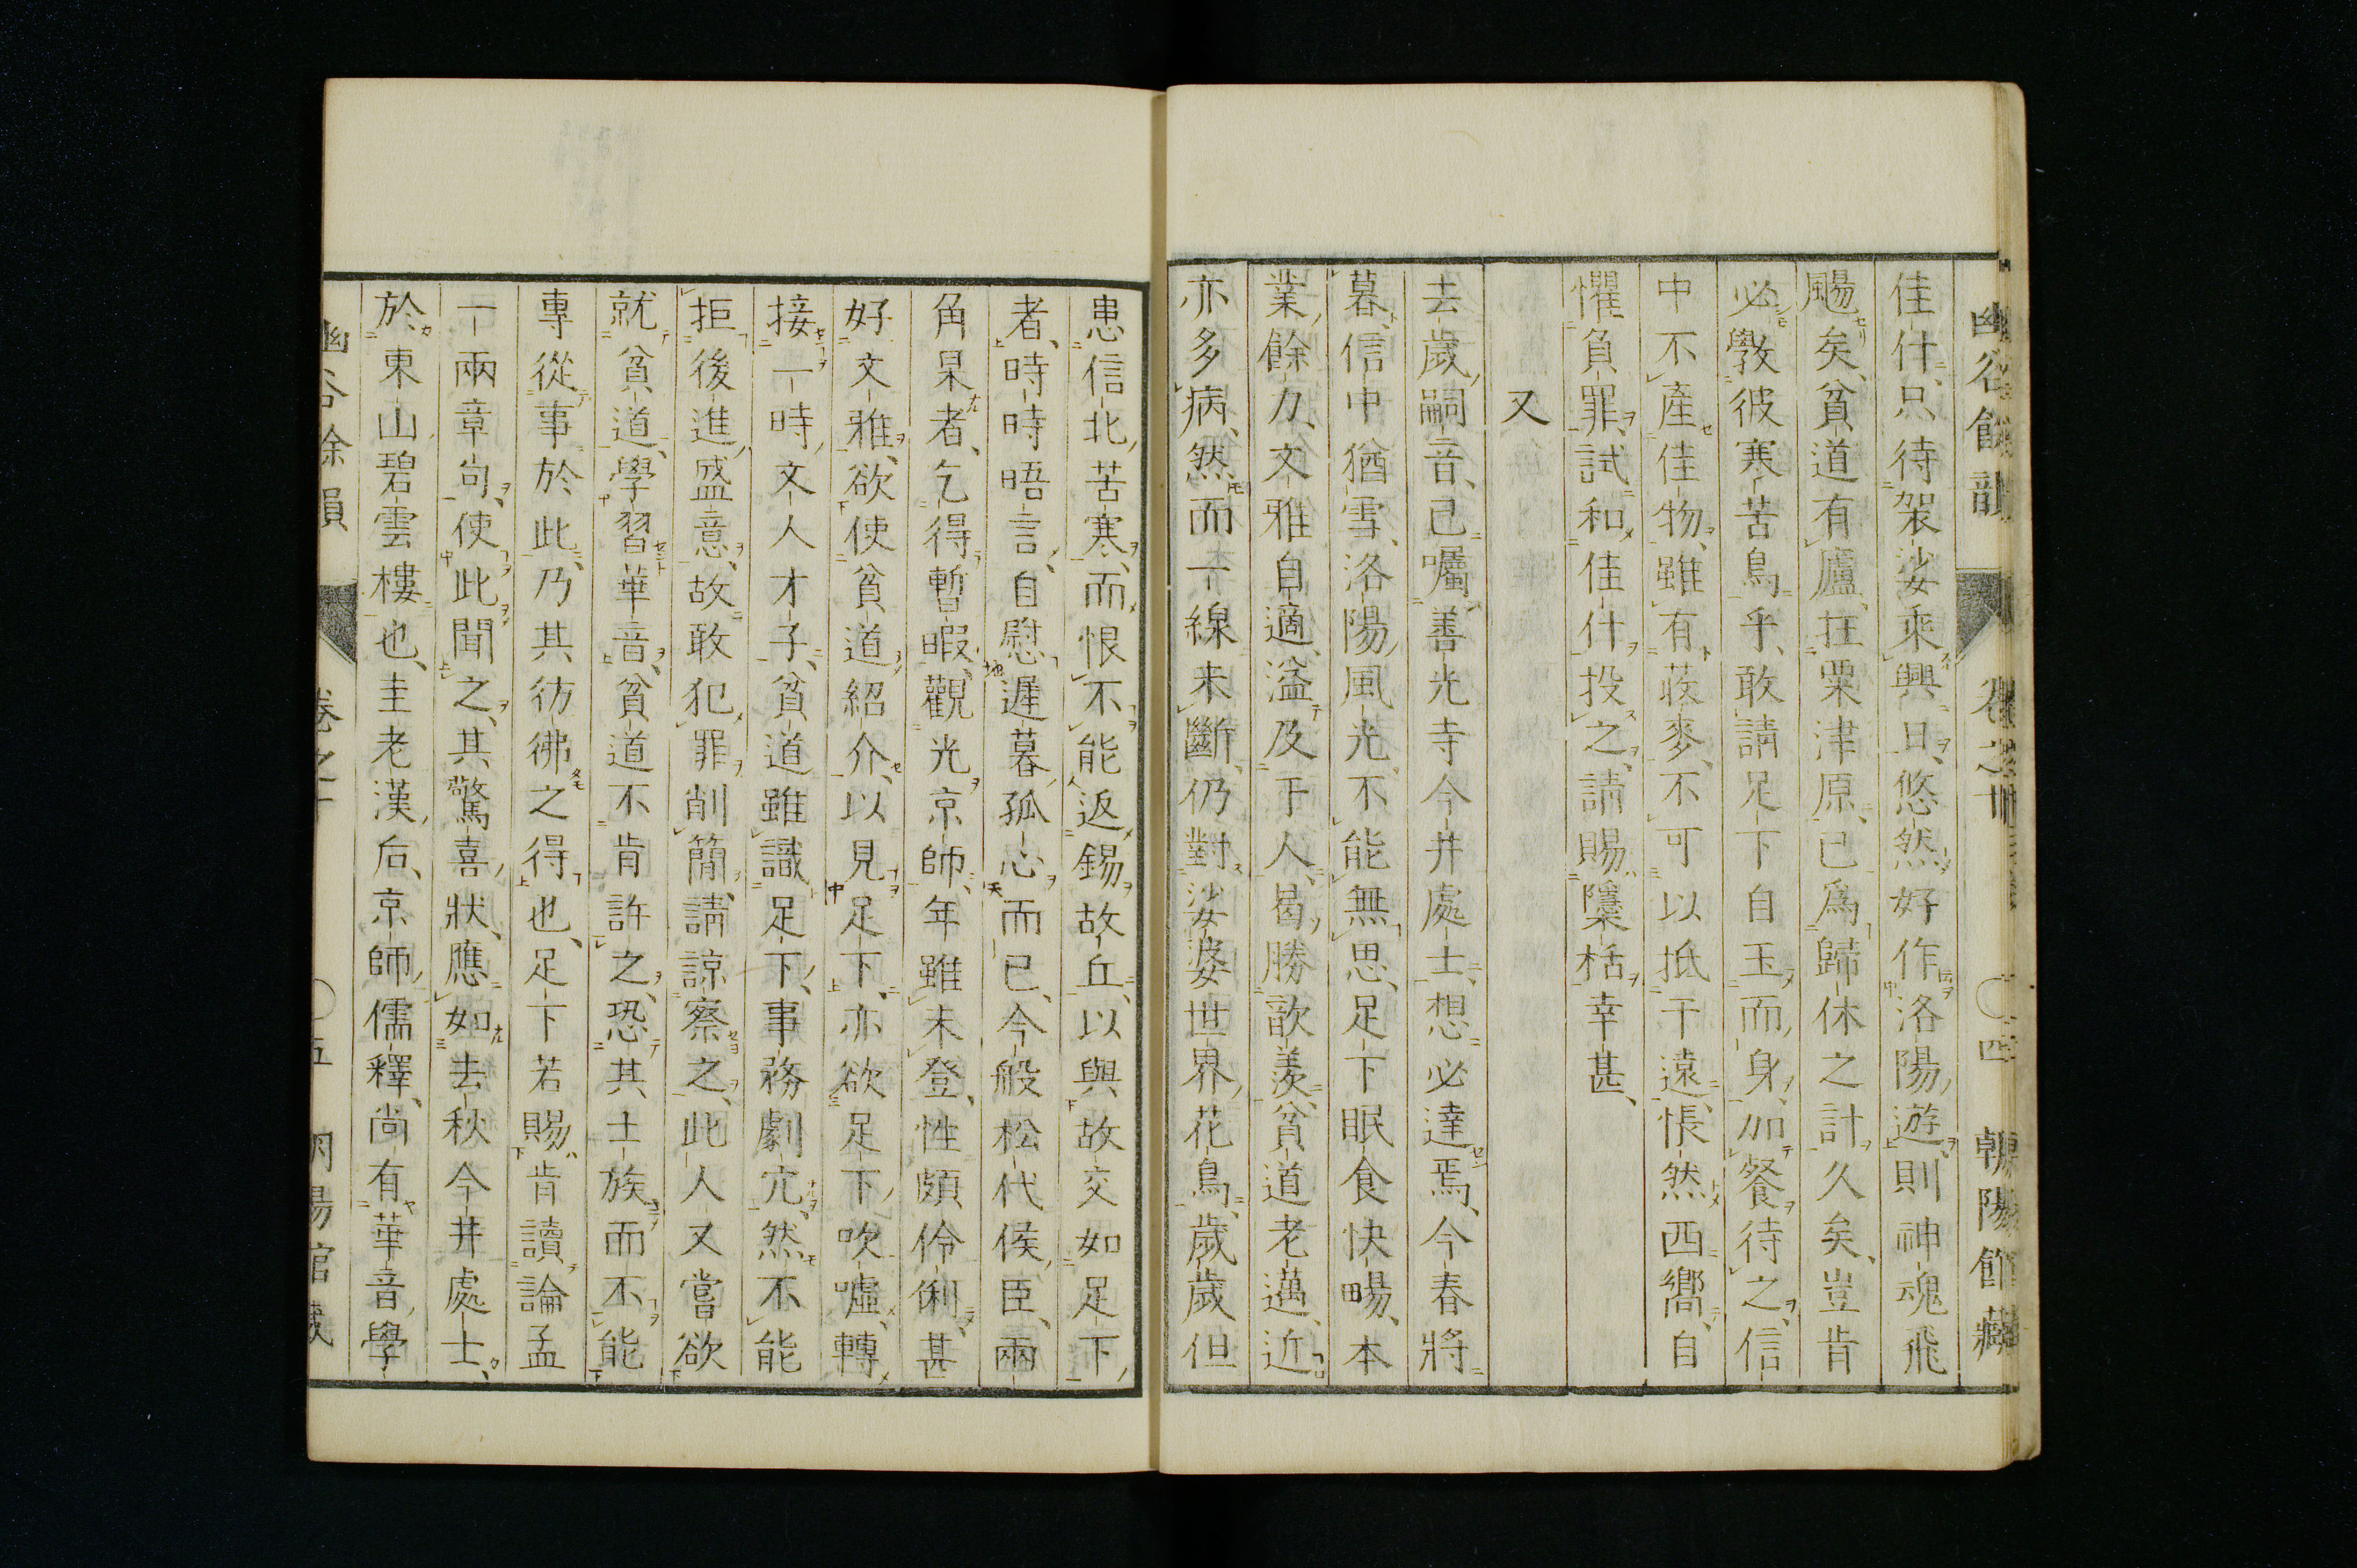 幽谷餘韻 卷之十 〇四 朝陽館藏
佳什、只待袈裟乘興日、悠然好作洛陽遊、則神魂飛
颺矣、貧道有廬、在粟津原、已爲歸休之計久矣、豈肯
必敎彼寒苦鳥乎、敢請足下自玉、而身加餐待之、信
中不產佳物、雖有蕎麥、不可以抵于遠、悵然西嚮、自
懼負罪、試和佳什投之、請賜櫽栝、幸甚、
又
去歲嗣音、已囑善光寺今井處士、想必達焉、今春將
暮、信中猶雪、洛陽風光、不能無思、足下眠食快暢、本
業餘力、文雅自適、溢及于人、曷勝歆羨、貧道老邁、近
亦多病、然而一線未斷、仍對娑婆世界花鳥、歲歲但
患信北苦寒、而恨不能返錫故丘、以與故交如足下
者、時時晤言、自慰遲暮孤心而已、今般松代侯臣、兩
角杲者、乞得暫暇、觀光京師、年雖未登、性頗伶俐、甚
好文雅、欲使貧道紹介、以見足下、亦欲足下吹噓、轉
接一時文人才子、貧道雖識足下、事務劇冗、然不能
拒後進盛意、故敢犯罪削簡、請諒察之、此人又嘗欲
就貧道、學習華音、貧道不肯許之、恐其士族而不能
專從事於此、乃其彷彿之得也、足下若賜肯讀論孟
一兩章句、使此聞之、其驚喜狀、應如去秋今井處士、
於東山碧雲樓也、圭老漢后、京師儒釋、尚有華音學
幽谷餘韻 卷之十 〇五 朝陽館藏